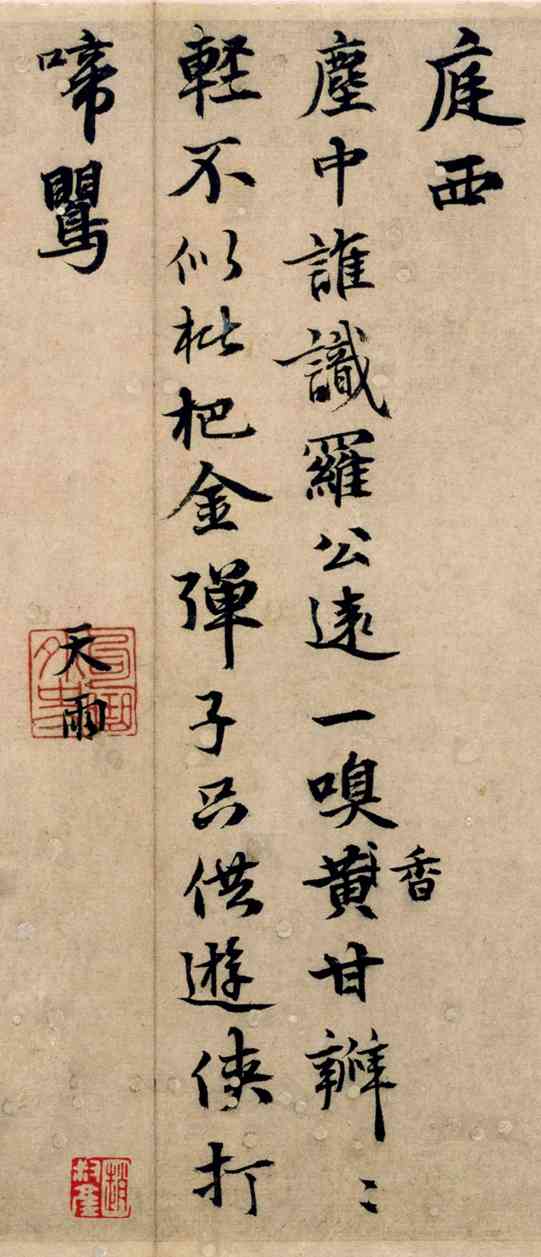 庭西
塵中誰識羅公遠一嗅黄甘瓣〻
香
軽不似枇杷金彈子只供遊俠打
啼鸎
天雨